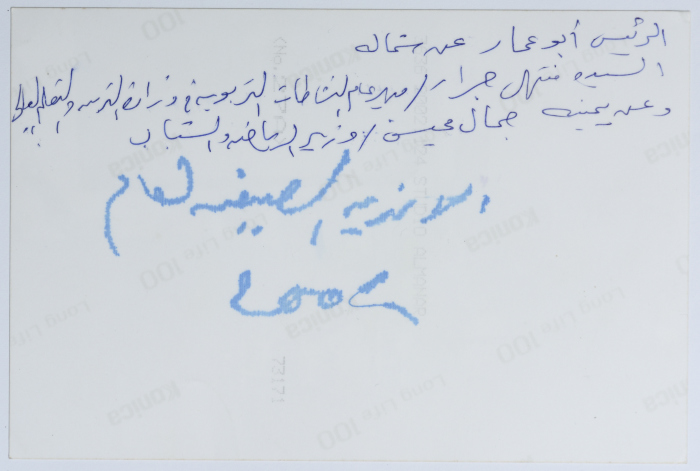 الرئيس أبو عمار عن شماله
السيده منتهى جرار / مدير عام النشاطات التربوية في وزارة التربيه والتعليم العالي
وعن يمينه جمال محيسن / وزير الرياضه والشباب
الاندية الصيفيه لعام
٢٠٠٤
Konica
Long Life 100
73171